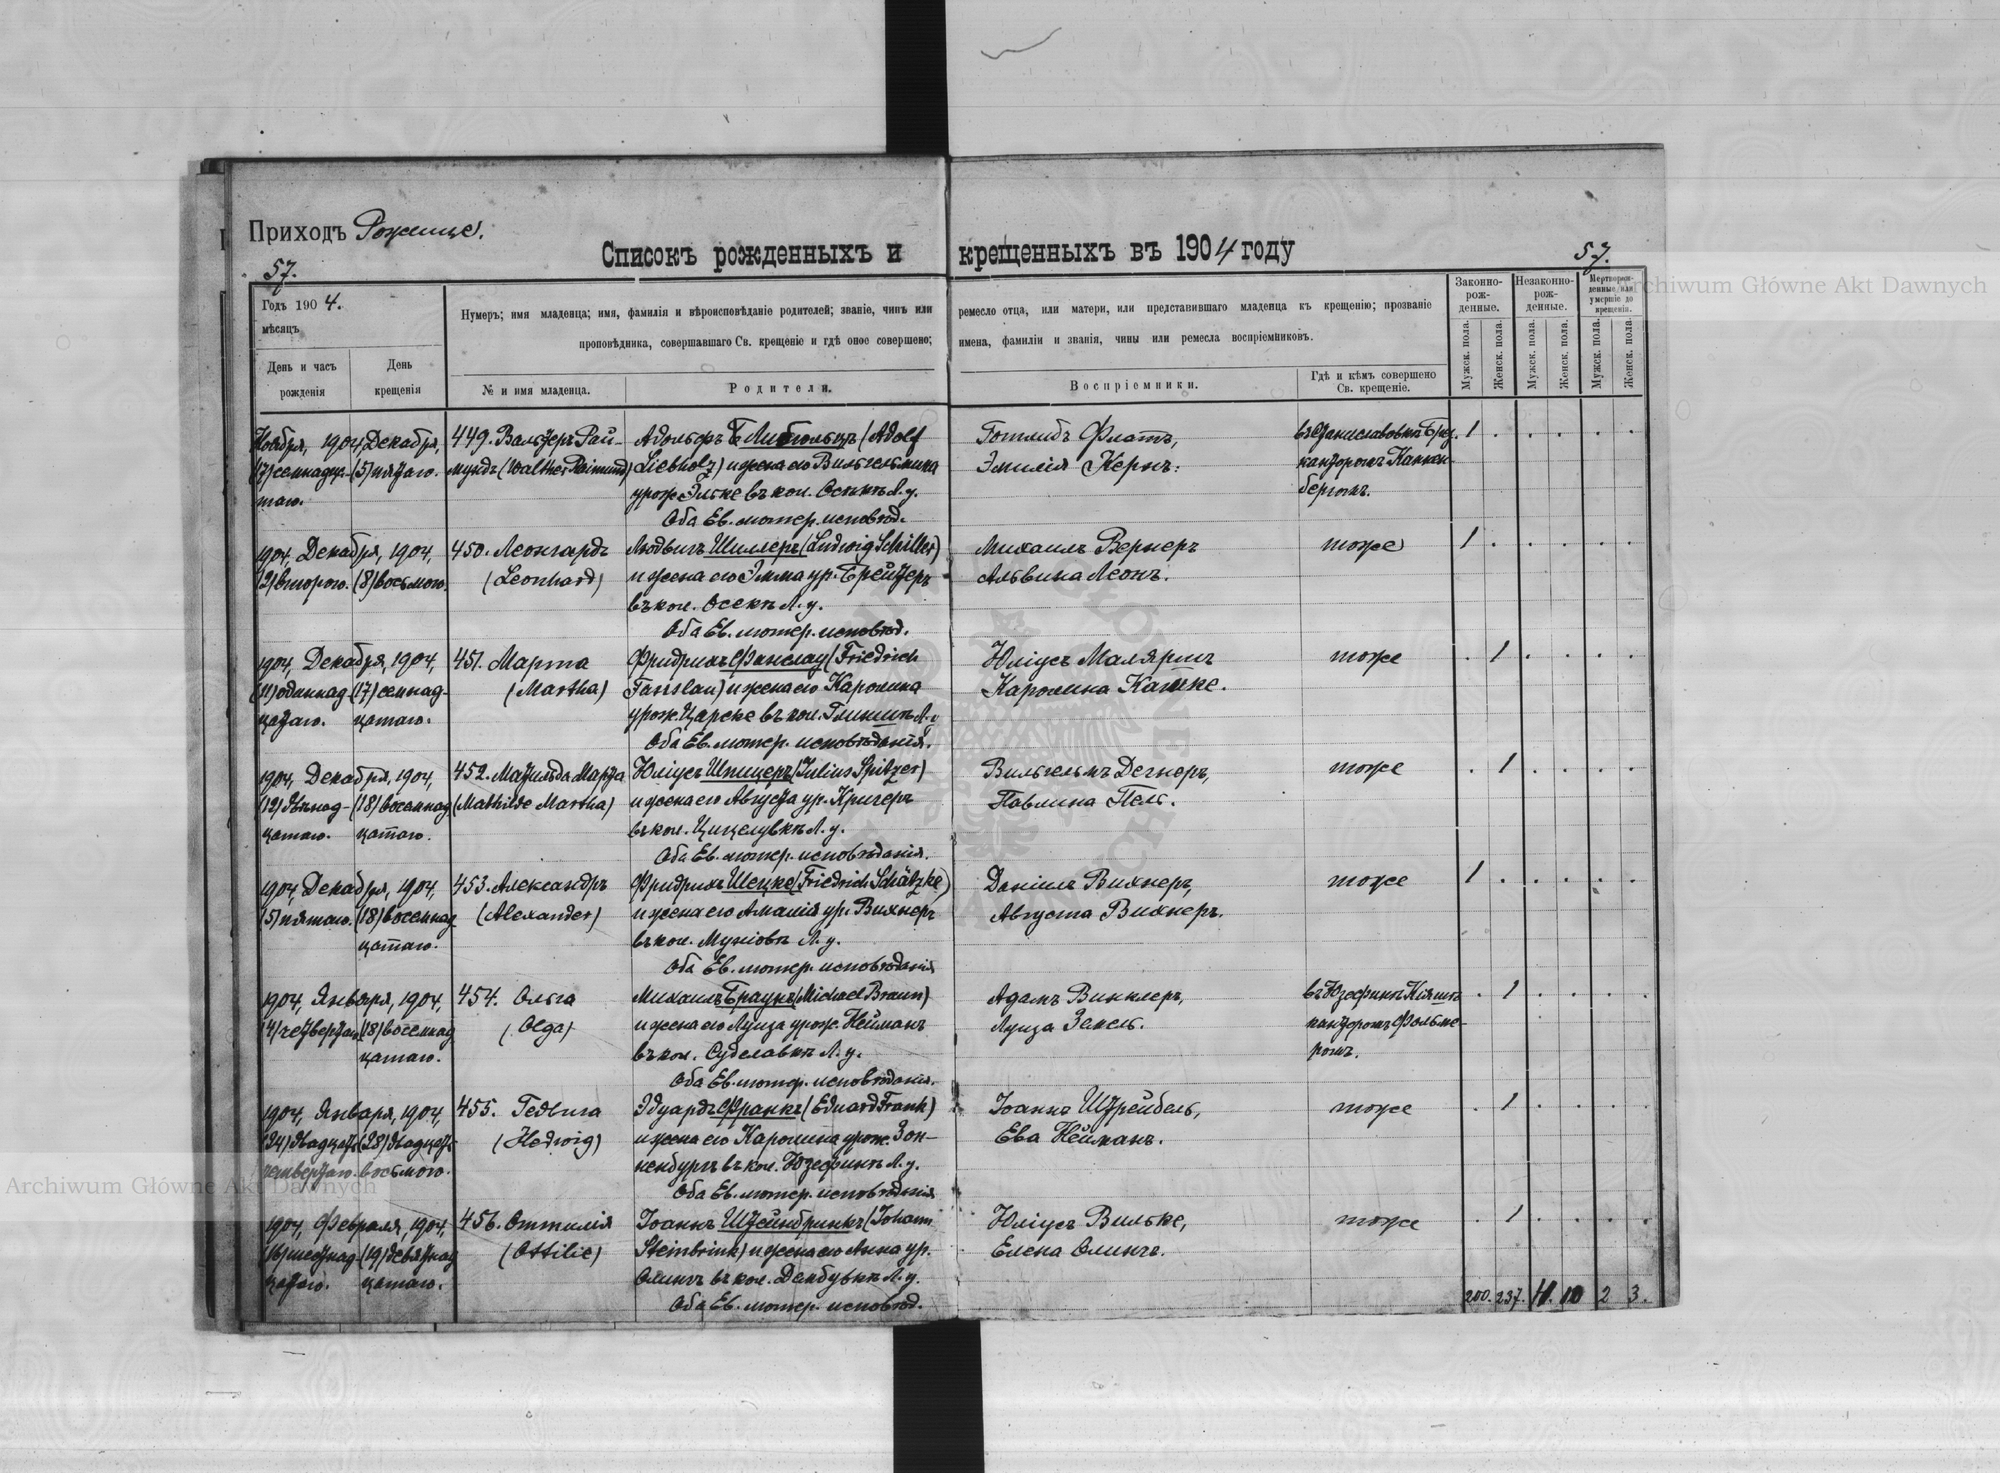 Приходъ Рожище.
Списокъ рожденныхъ и крещенныхъ въ 1904 году
57.
57.
Годъ 1904.
мѣсяцъ
День и часъ рожденія
День крещенія
Нумеръ; имя младенца; имя, фамилія и вѣроисповѣданіе родителей; званіе, чинъ или ремесло отца, или матери, или представившаго младенца къ крещенію; прозваніе
проповѣдника, совершавшаго Св. крещеніе и гдѣ оное совершено; имена, фамиліи и званія, чины или ремесла воспріемниковъ.
№ и имя младенца.
Родители.
Воспріемники.
Гдѣ и кѣмъ совершено Св. крещеніе.
Законно-рож-денные.
Незаконно-рож-денные.
Мертворож-денные или умершіе до крещенія.
Мужск. пола.
Женск. пола.
Мужск. пола.
Женск. пола.
Мужск. пола.
Женск. пола.
Ноября, 1904, Декабря,
(17) семнадца-
таго.
(5) пятаго.
449. Вальтеръ Рай-
мундъ (Walther Raimund)
Адольфъ Либгольцъ (Adolf
Liebholz) и жена его Вильгельмина
урож. въ кол. Осекъ Л. у.
Оба Ев. лютер. исповѣд.
Готлибъ Флатъ,
Эмилія Кернъ.
въ Станиславовкѣ
канторомъ Каннен-
бергомъ.
1
1904, Декабря, 1904,
(2) второго. (8) восьмого.
450. Леонгардъ
(Leonhard)
Людвигъ Шиллеръ (Ludwig Schiller)
и жена его Эмма ур. Брейтеръ
въ кол. Осекъ Л. у.
Оба Ев. лютер. исповѣд.
Михаилъ Вернеръ
Альвина Леонъ.
тоже
1
1904, Декабря, 1904,
(11) одиннад-
цатаго.
(17) семнад-
цатаго.
451. Марта
(Martha)
Фридрихъ Фанслау (Friedrich
Fanslau) и жена его Каролина
урож. Царске въ кол. Глинищъ Л. у.
Оба Ев. лютер. исповѣданія.
Юліусъ
Каролина
тоже
1
1904, Декабря, 1904,
(12) двѣнад-
цатаго.
(18) восемнад
цатаго.
452. Матильда Марта
(Mathilde Martha)
Юліусъ Шпицеръ (Julius Spitzer)
и жена его Августа ур. Кригеръ
въ кол. Цецелувкѣ Л. у.
Оба Ев. лютер. исповѣданія.
Вильгельмъ Дегнеръ,
Павлина
тоже
1
1904, Декабря, 1904,
(5) пятаго. (18) восемнад
цатаго.
453. Александръ
(Alexander)
Фридрихъ Шецке (Friedrich Schätzke)
и жена его Амалія ур. Вихнеръ
въ кол. Л. у.
Оба Ев. лютер. исповѣданія
Даніилъ Вихнеръ,
Августа Вихнеръ.
тоже
1
1904, Января, 1904,
(4) четвертаго (18) восемнад
цатаго.
454. Ольга
(Olga)
Михаилъ Браунъ (Michael Braun)
и жена его Луиза урож. Нейманъ
въ кол. Л. у.
Оба Ев. лютер. исповѣданія.
Адамъ Винклеръ,
Луиза
въ Юзефинѣ
канторомъ Фольме-
ромъ.
1
1904, Января, 1904,
(24) двадцать (28) двадцать
четвертаго. восьмого.
455. Гедвига
(Hedwig)
Эдуардъ Франкъ (Eduard Frank)
и жена его Каролина урож. Зон-
ненбургъ въ кол. Юзефинъ Л. у.
Оба Ев. лютер. исповѣданія
Іоаннъ Штрейбель,
Ева Нейманъ.
тоже
1
1904, Февраля, 1904,
(16) шестнад-
цатаго.
(19) девятнад
цатаго.
456. Оттилія
(Ottilie)
Іоаннъ Штейнбринкъ (Johann
Steinbrink) и жена его Анна ур.
въ кол. Л. у.
Оба Ев. лютер. исповѣд.
Юліусъ Вильке,
Елена
тоже
1
200. 237. 11. 10 2 3.
Archiwum Główne Akt Dawnych
Archiwum Główne Akt Dawnych